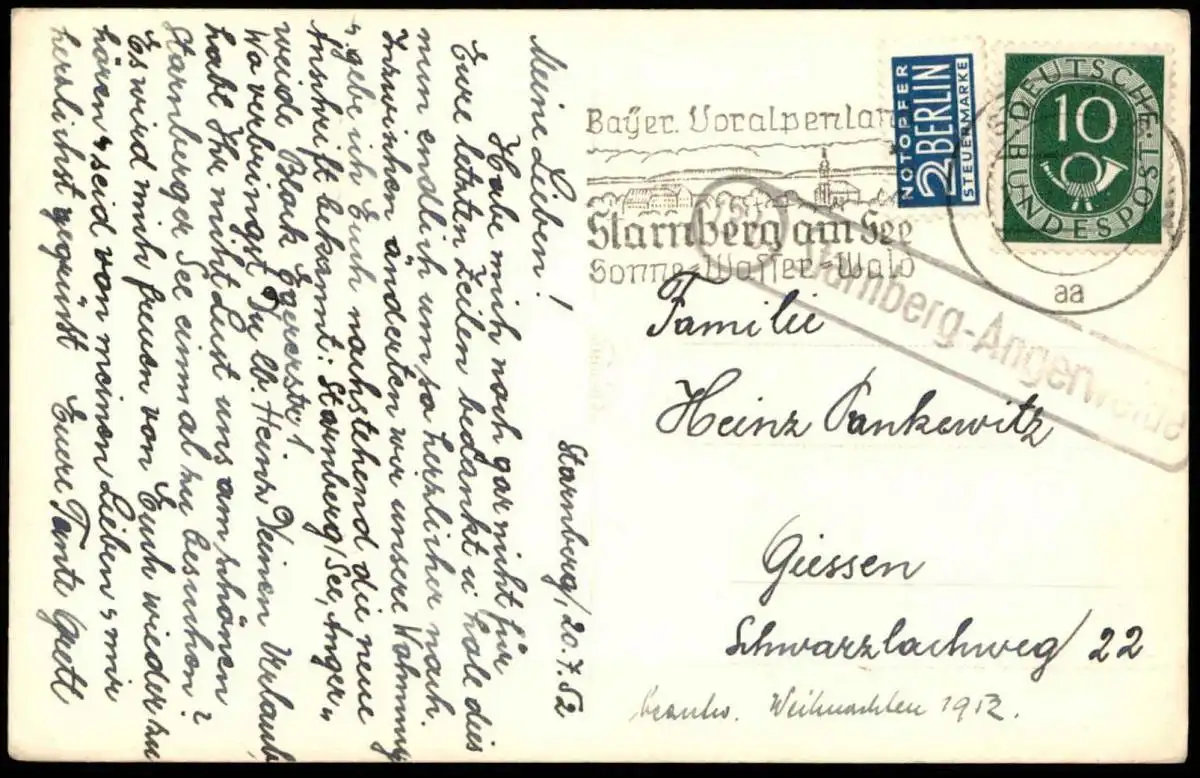 Meine Lieben!
Starnberg, 20.7.52
Habe mich noch gar nicht für
Eure letzten Zeilen bedankt u. hole dies
nun endlich um so herzlicher nach.
Inzwischen änderten wir unsere Wohnung
u. gebe ich Euch nachstehend die neue
Anschrift bekannt: Starnberg/See, Anger-
weide, Block Egererstr.!
Wo verbringst Du, lb. Heinz Deinen Urlaub,
habt Ihr nicht Lust uns am schönen
Starnberger See einmal zu besuchen?
Es wird mich freuen von Euch wieder zu
hören u. seid von meinen Lieben u. mir
herzlichst gegrüsst Eure Tante Gretl
Bayer. Voralpenlan
Starnberg am See
Sonne-Wasser-Wald
NOTOPFER
2 BERLIN
STEUERMARKE
DEUTSCHE
BUNDESPOST
10
aa
Starnberg-Angerweide
Familie
Heinz Pankewitz
Giessen
Schwarzlachweg/22
beantw. Weihnachten 1952.